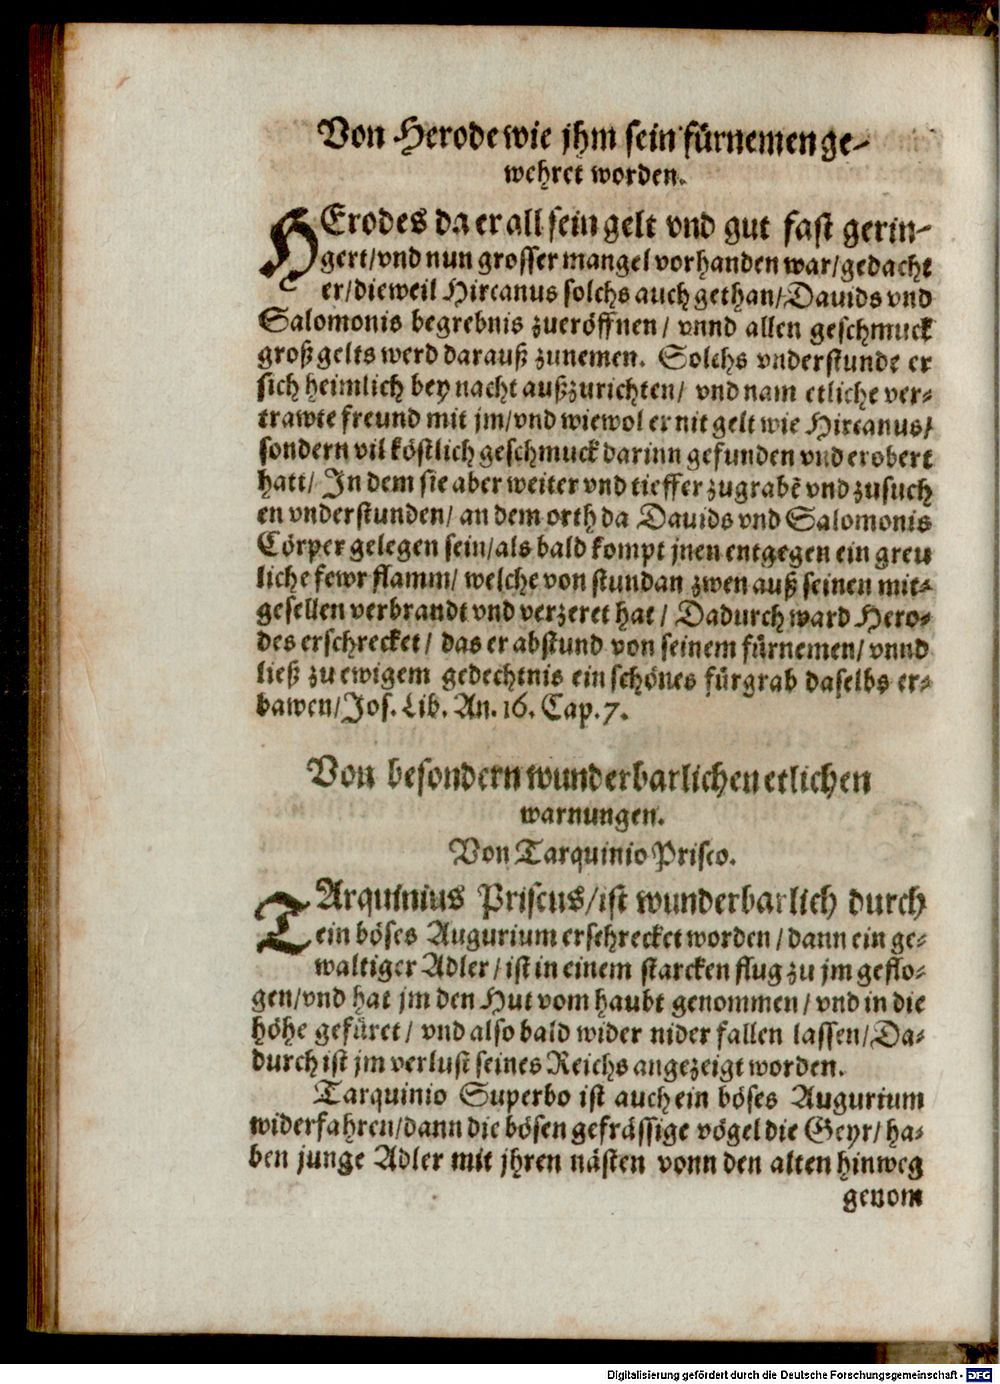 Von Herode wie jhm sein fürnemen ge-
wehret worden.
HErodes da er all sein gelt vnd gut fast gerin-
gert/vnd nun grosser mangel vorhanden war/gedacht
er/dieweil Hircanus solchs auch gethan/Dauids vnd
Salomonis begrebnis zueröffnen/ vnnd allen geschmuck
groß gelts werd darauß zunemen. Solchs vnderstunde er
sich heimlich bey nacht außzurichten/ vnd nam etliche ver-
trawte freund mit jm/vnd wiewol er nit gelt wie Hircanus/
sondern vil köstlich geschmuck darinn gefunden vnd erobert
hatt/ In dem sie aber weiter vnd tieffer zugrabē vnd zusuch
en vnderstunden/ an dem orth da Dauids vnd Salomonis
Cörper gelegen sein/als bald kompt jnen entgegen ein greu
liche fewr flamm/ welche von stundan zwen auß seinen mit-
gesellen verbrandt vnd verzeret hat/ Dadurch ward Hero-
des erschrecket/ das er abstund von seinem fürnemen/ vnnd
ließ zu ewigem gedechtnis ein schönes fürgrab daselbs er-
bawen/Jos. Lib. An. 16. Cap. 7.
Von besondern wunderbarlichen etlichen
warnungen.
Von Tarquinio Prisco.
TArquinius Priscus/ist wunderbarlich durch
ein böses Augurium erschrecket worden/dann ein ge-
waltiger Adler/ist in einem starcken flug zu jm geflo-
gen/vnd hat jm den Hut vom haubt genommen/ vnd in die
höhe gefüret/ vnd also bald wider nider fallen lassen/Da-
durch ist jm verlust seines Reichs angezeigt worden.
Tarquinio Superbo ist auch ein böses Augurium
widerfahren/dann die bösen gefrässige vögel die Geyr/ha-
ben junge Adler mit jhren nästen vonn den alten hinweg
genom
Digitalisierung gefördert durch die Deutsche Forschungsgemeinschaft - DFG